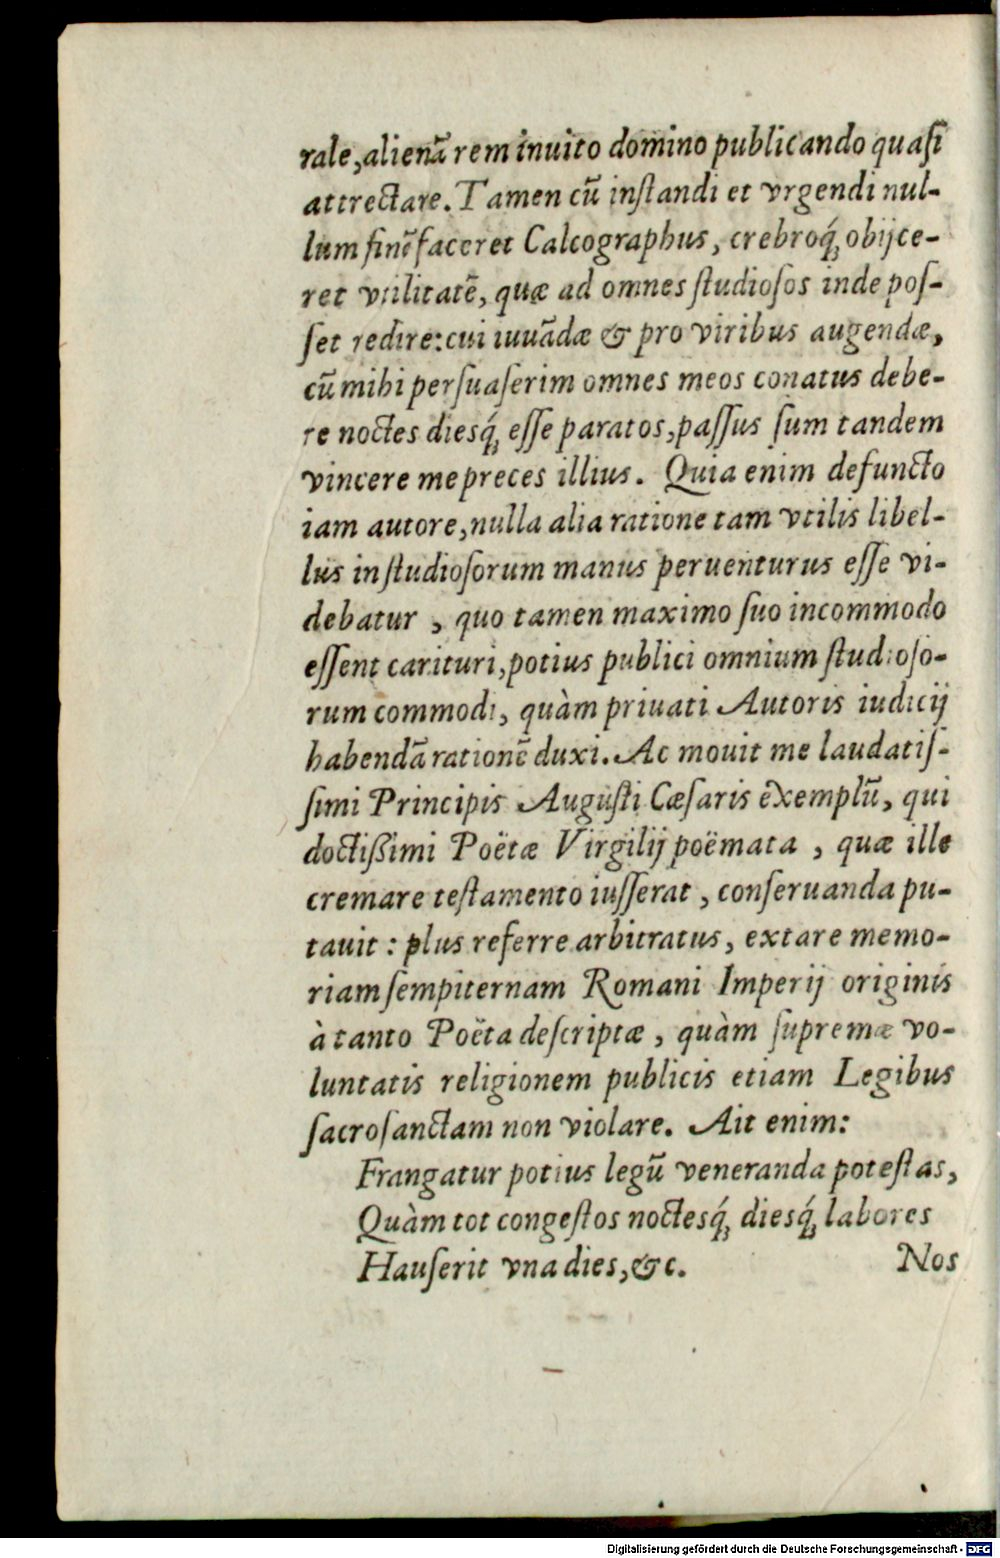 rale, alienā rem inuito domino publicando quaſi
attrectare. Tamen cū inſtandi et vrgendi nul-
lum finē faceret Calcographus, crebroq́ꝫ obijce-
ret vtilitatē, quæ ad omnes ſtudioſos inde poſ-
ſet redire: cui iuuādæ & pro viribus augendæ,
cū mihi perſuaſerim omnes meos conatus debe-
re noctes diesq́ꝫ eſſe paratos, paſſus ſum tandem
vincere me preces illius. Quia enim defuncto
iam autore, nulla alia ratione tam vtilis libel-
lus in ſtudioſorum manus peruenturus eſſe vi-
debatur, quo tamen maximo ſuo incommodo
eſſent carituri, potius publici omnium ſtudioſo-
rum commodi, quàm priuati Autoris iudicij
habendā rationē duxi. Ac mouit me laudatiſ-
ſimi Principis Auguſti Cæſaris exemplū, qui
doctißimi Poëtæ Virgilij poëmata, quæ ille
cremare teſtamento iuſſerat, conſeruanda pu-
tauit: plus referre arbitratus, extare memo-
riam ſempiternam Romani Imperij originis
à tanto Poëta deſcriptæ, quàm ſupremæ vo-
luntatis religionem publicis etiam Legibus
ſacroſanctam non violare. Ait enim:
Frangatur potius legū veneranda poteſtas,
Quàm tot congeſtos noctesq́ꝫ diesq́ꝫ labores
Hauſerit vna dies, &c. Nos
Digitalisierung gefördert durch die Deutsche Forschungsgemeinschaft - DFG